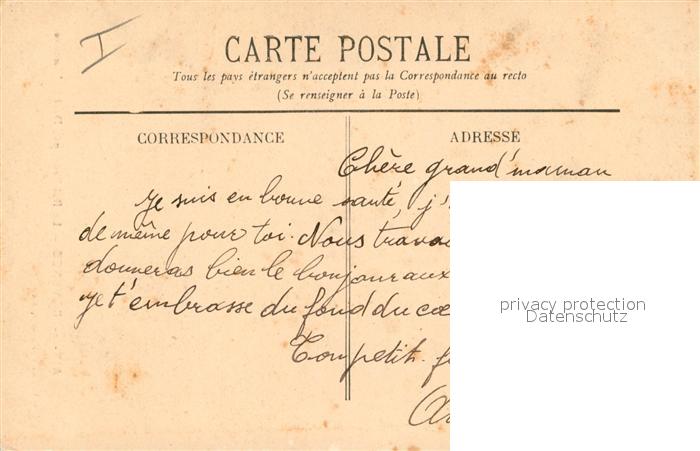 I
CARTE POSTALE
Tous les pays étrangers n'acceptent pas la Correspondance au recto
(Se renseigner à la Poste)
CORRESPONDANCE
ADRESSE
Chère grand'maman
Je suis en bonne santé, j'
de même pour toi. Nous
donneras bien le bonjour aux
Je t'embrasse du fond du
Ton petit
privacy protection
Datenschutz